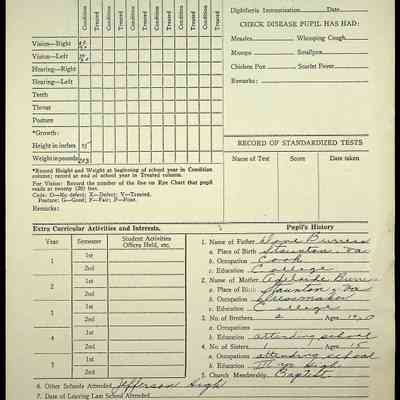 Condition Treated Condition Treated Condition Treated Condition Treated Condition Treated Condition Treated
Vision—Right
Vision—Left
Hearing—Right
Hearing—Left
Teeth
Throat
Posture
*Growth:
Height in inches
Weight in pounds
*Record Height and Weight at beginning of school year in Condition
column; record at end of school year in Treated column.
For Vision: Record the number of the line on Eye Chart that pupil
reads at twenty (20) feet.
Code: O—No defect; X—Defect; V—Treated.
Posture: G—Good; F—Fair; P—Poor.
Remarks:
Diphtheria Immunization Date
CHECK DISEASE PUPIL HAS HAD:
Measles Whooping Cough
Mumps Smallpox
Chicken Pox Scarlet Fever
Remarks:
RECORD OF STANDARDIZED TESTS
Name of Test Score Date taken
Extra Curricular Activities and Interests.
Year Semester Student Activities
Offices Held, etc.
1 1st
2nd
2 1st
2nd
3 1st
2nd
4 1st
2nd
5 1st
2nd
6. Other Schools Attended Jefferson High
7. Date of Leaving Last School Attended
Pupil's History
1. Name of Father
a. Place of Birth Staunton, Va
b. Occupation Cook
c. Education College
2. Name of Mother Adelaide
a. Place of Birth Staunton, Va
b. Occupation Dressmaker
c. Education College
3. No. of Brothers 2 Ages
a. Occupations
b. Education attending school
4. No. of Sisters 1 Ages 15
a. Occupations attending school
b. Education High
5. Church Membership Baptist